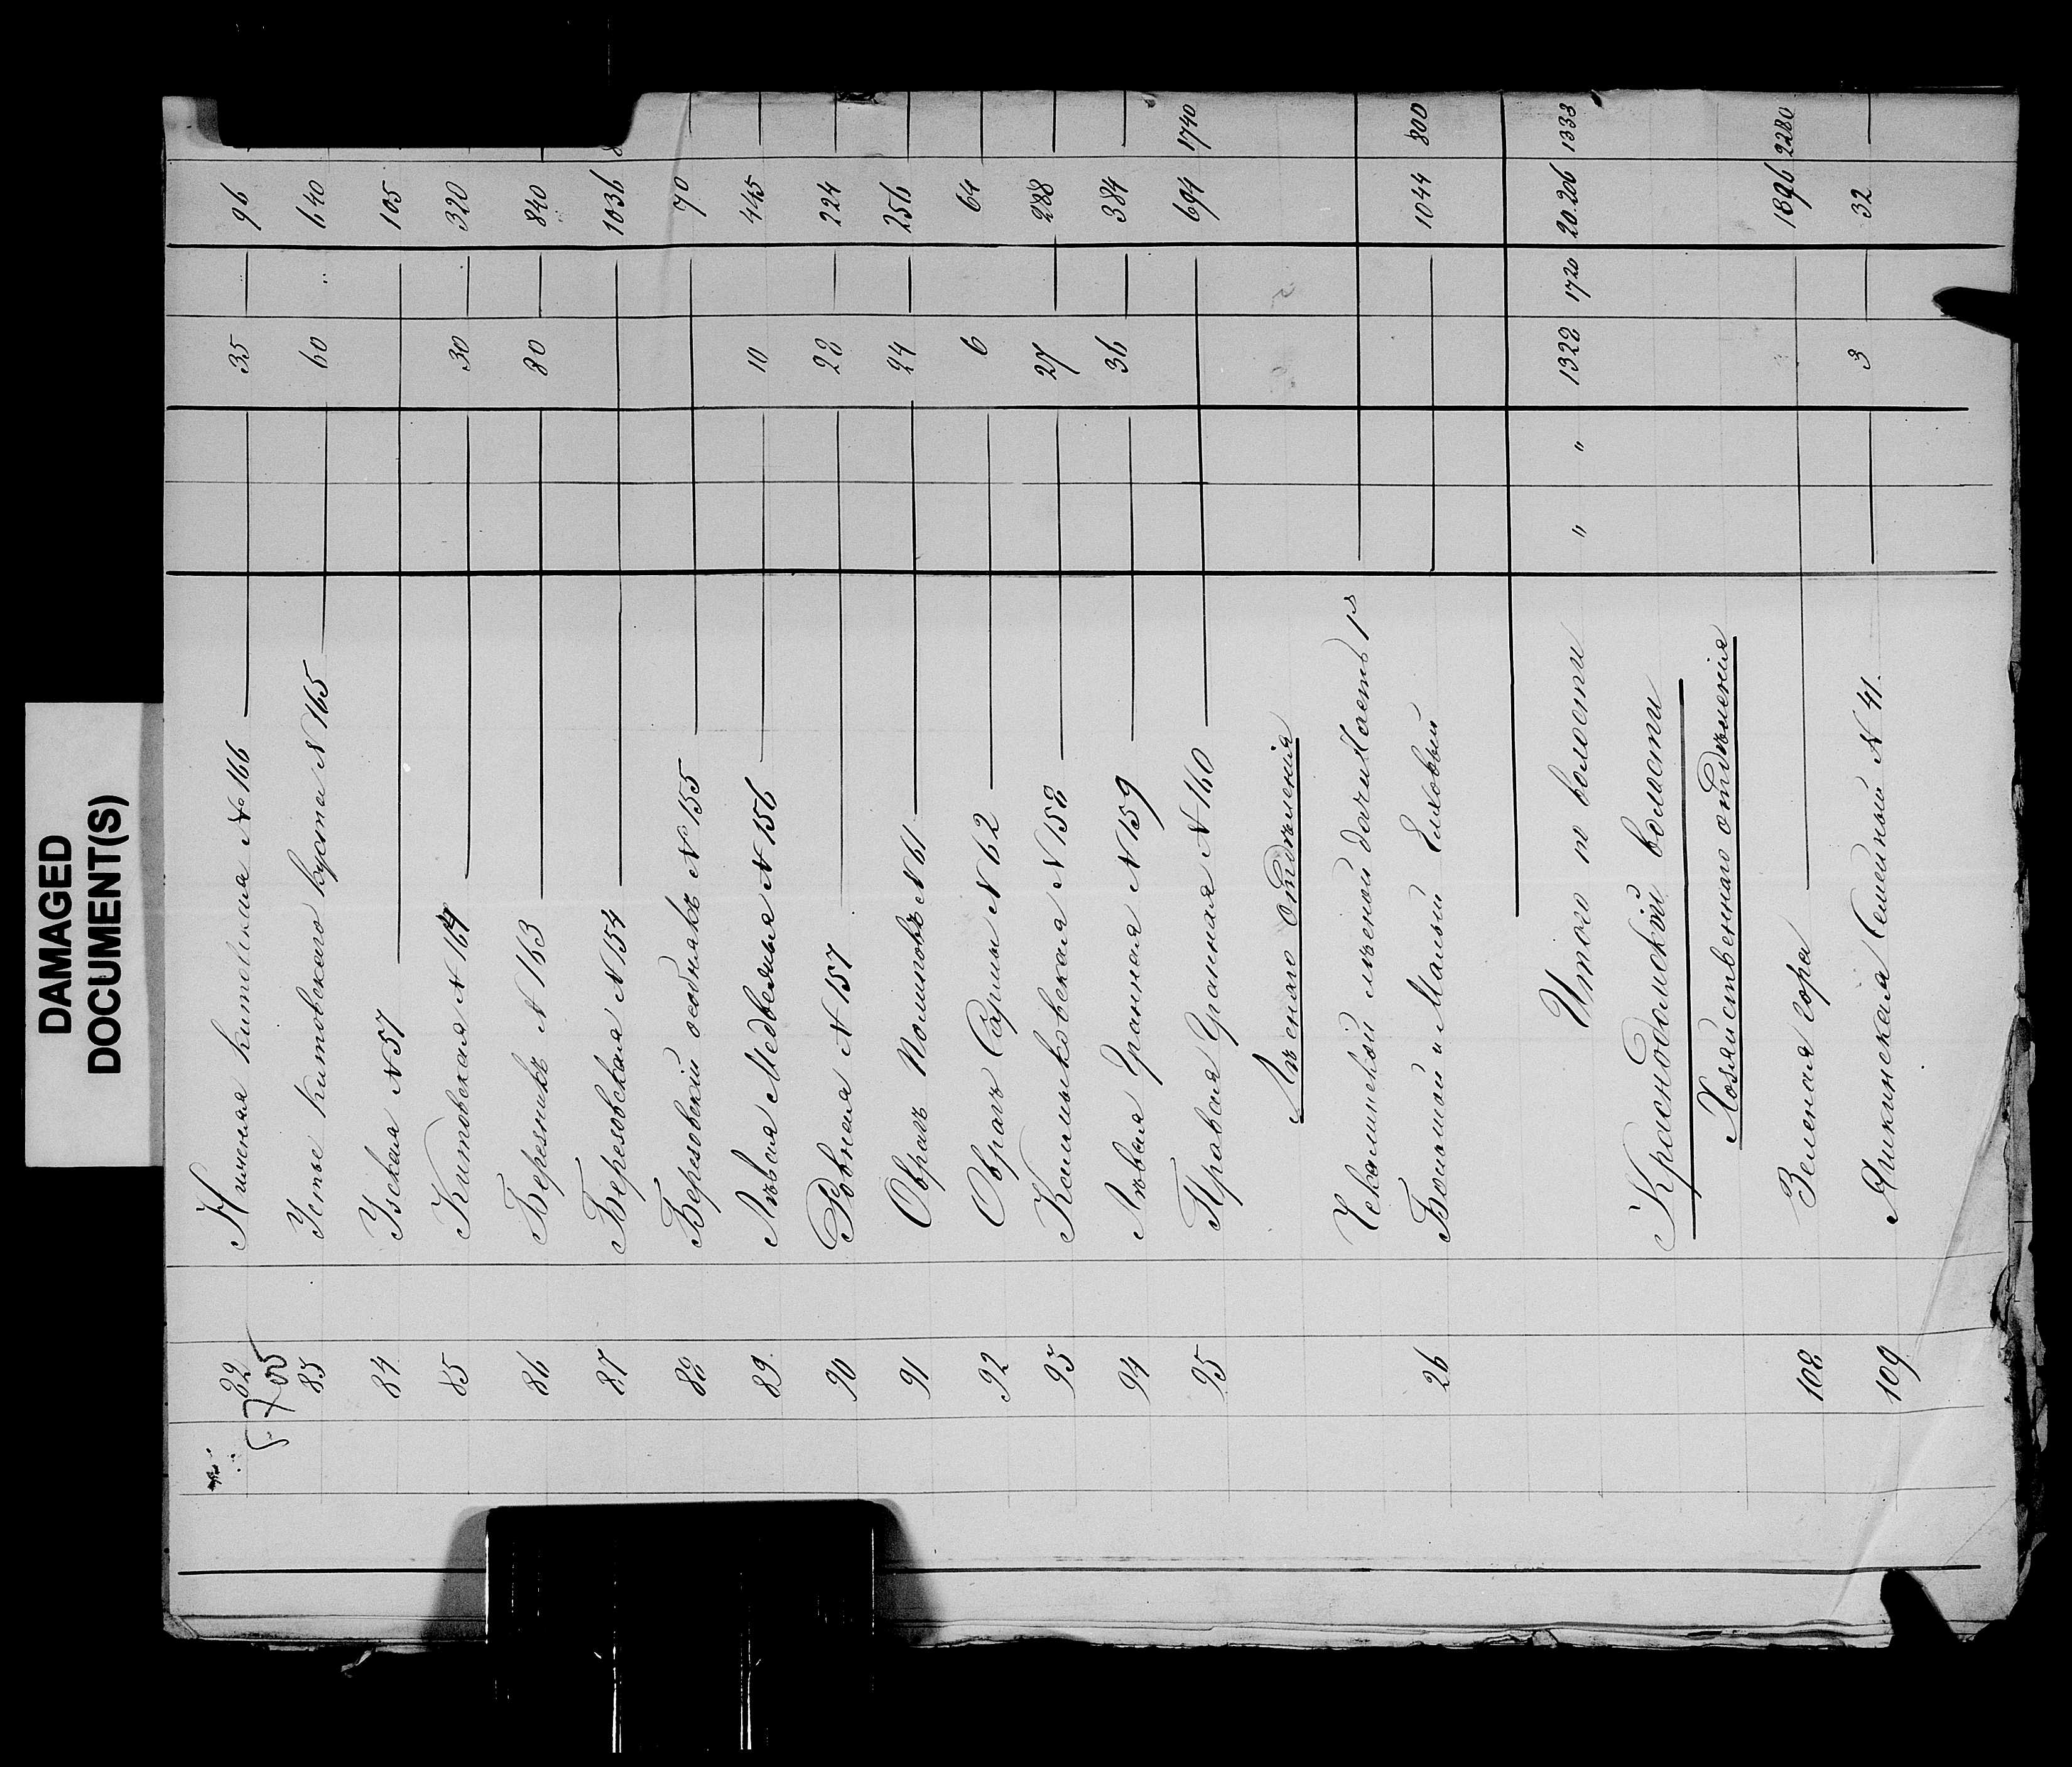 DAMAGED
DOCUMENT(S)
82 Нижняя Китовская № 166 35 96
83 Устье Китовскаго куста № 165 60 640
84 Узская № 57 105
85 Китовская № 164 30 320
86 Березникъ № 163 80 840
87 Березовская № 154 1036
88 Березовскій особнякъ № 155 70
89 Лѣвая Медвежья № 156 10 445
90 Ровная № 157 28 224
91 Оврагъ № 61 24 256
92 Оврагъ Сармы № 62 6 64
93 № 158 27 288
94 Лѣвая Гранная № 159 36 384
95 Правая Гранная № 160 694 1740
Лѣснаго отдѣленія
лѣсной дачи Часть 1я
26 Большой и Малый Елховый 1044 800
Итого по волости " " 1328 1720 20.206 1333
Краснодомской волости
Хозяйственнаго отдѣленія
108 Зеленая гора 1896 2280
109 Яшкинская Семейный № 41. 3 32